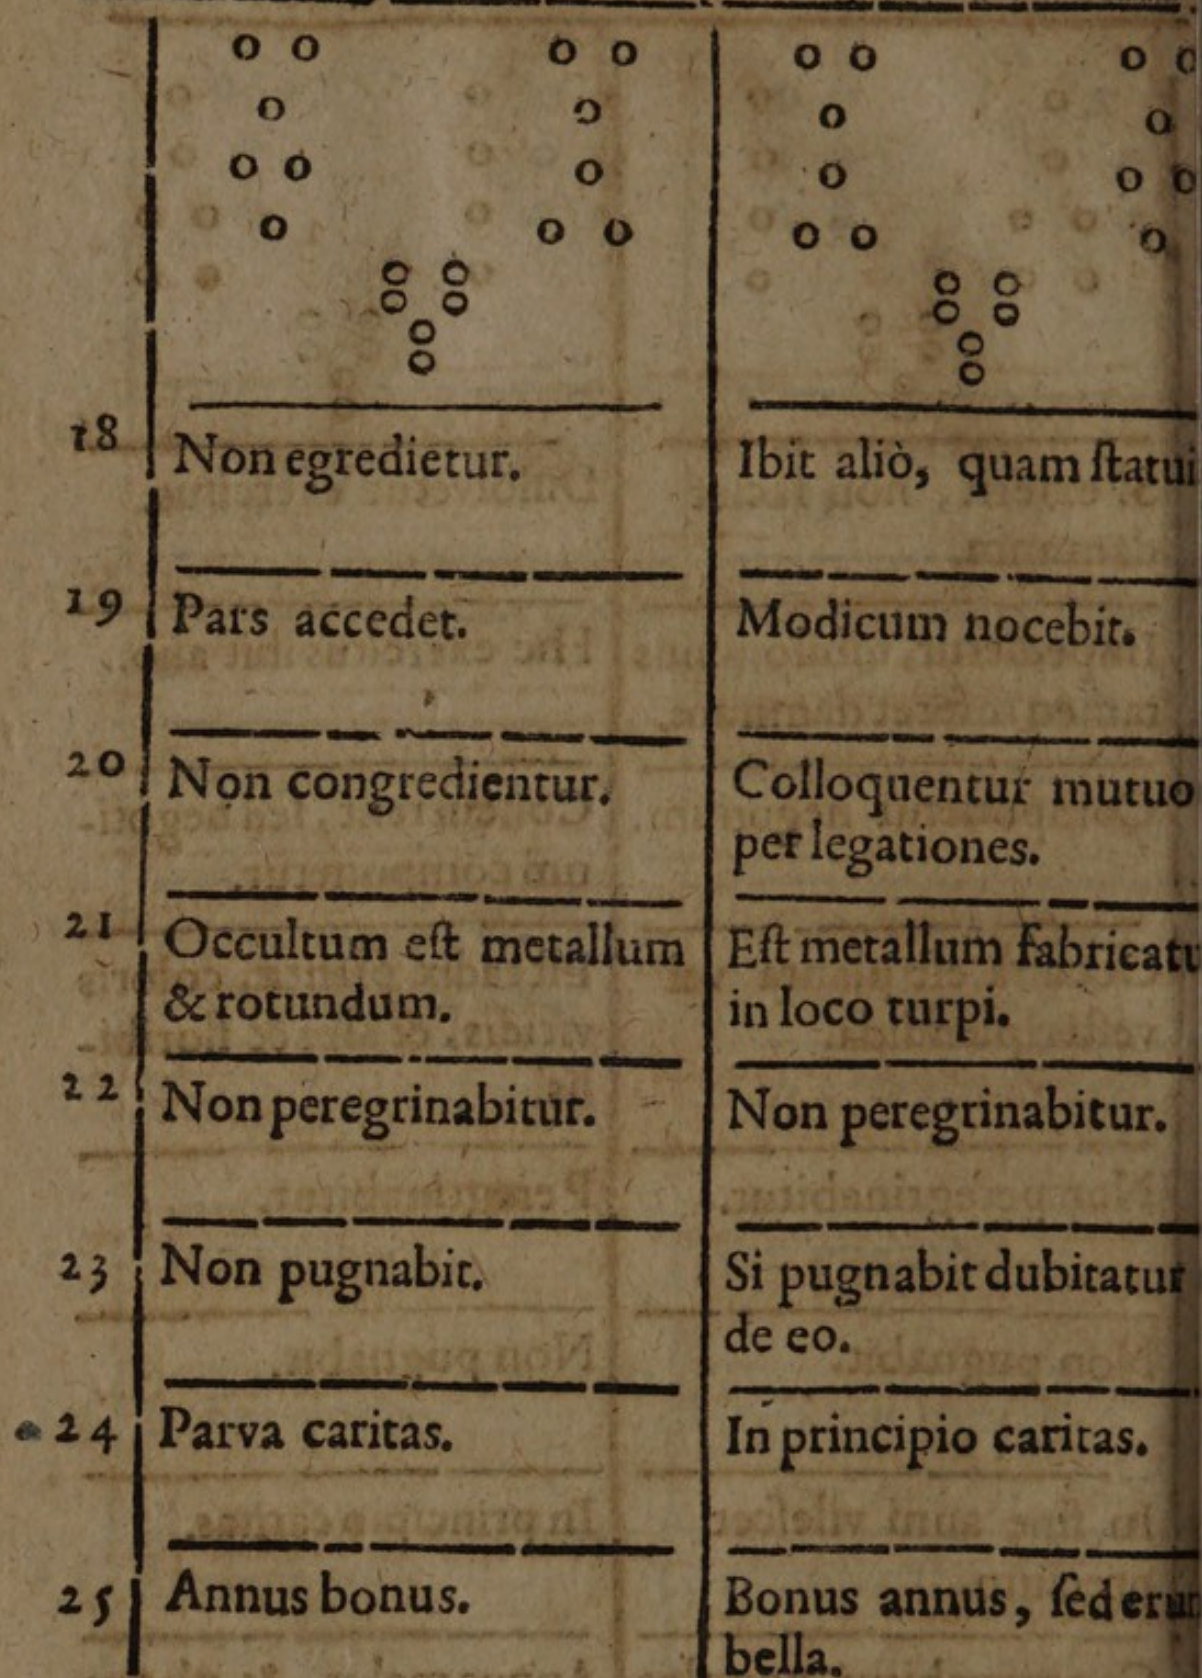 18
Non egredietur.
Ibit aliò, quam ſtatui
19
Pars accedet.
Modicum nocebit.
20
Non congredientur.
Colloquentur mutuo
per legationes.
21
Occultum eſt metallum
& rotundum.
Eſt metallum fabricatu
in loco turpi.
22
Non peregrinabitur.
Non peregrinabitur.
23
Non pugnabit.
Si pugnabit dubitatur
de eo.
24
Parva caritas.
In principio caritas.
25
Annus bonus.
Bonus annus, ſed erun
bella.